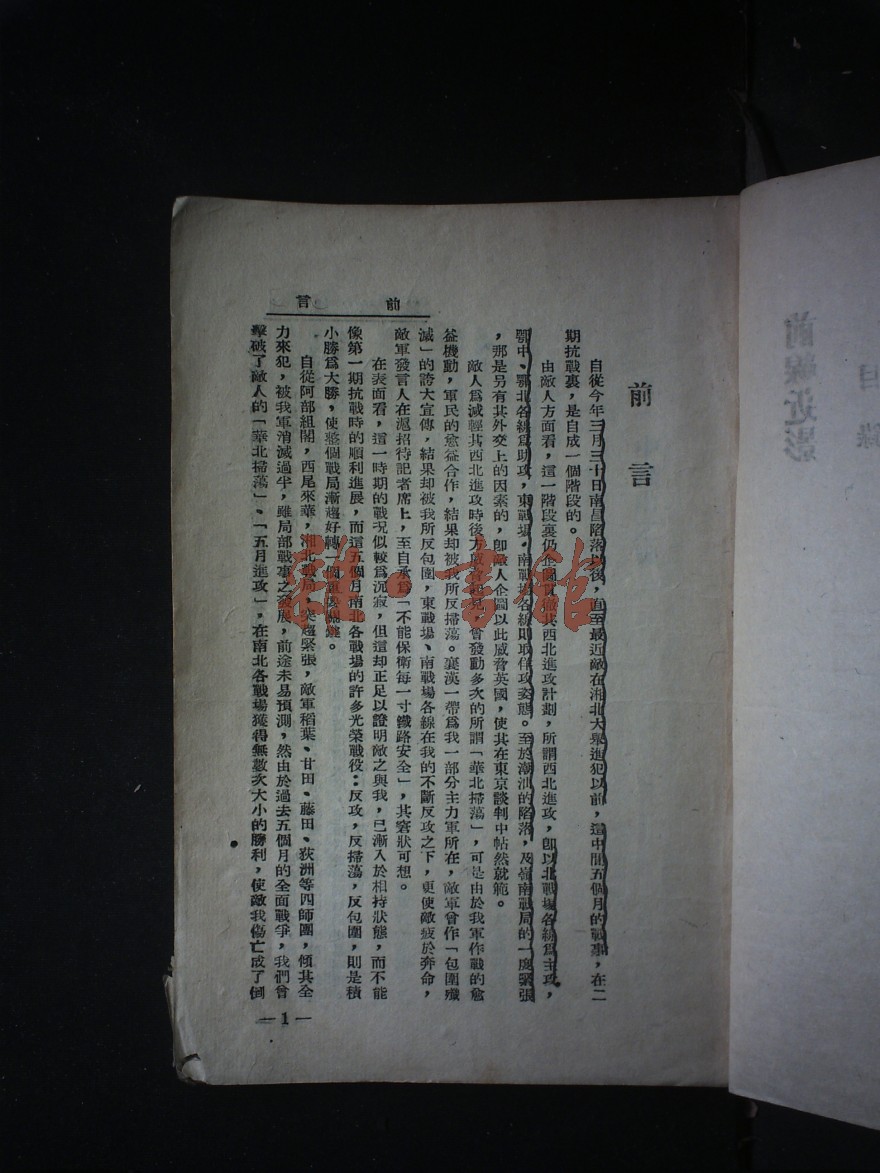 前言
前言
自從今年三月三十日南昌陷落以後，直至最近敵在湘北大舉進犯以前，這中間五個月的戰事，在二
期抗戰裏，是自成一個階段的。
由敵人方面看，這一階段裏仍企圖貫徹其西北進攻計劃，所謂西北進攻，卽以北戰場各線爲主攻，
鄂中、鄂北各線爲助攻，東戰場、南戰場各線則取佯攻姿態。至於潮汕的陷落，及嶺南戰局的一度緊張
，那是另有其外交上的因素的，卽敵人企圖以此威脅英國，使其在東京談判中帖然就範。
敵人爲減輕其西北進攻時後方威脅起見，曾發動多次的所謂「華北掃蕩」，可是由於我軍作戰的愈
益機動，軍民的愈益合作，結果却被我所反掃蕩。襄漢一帶爲我一部分主力軍所在，敵軍曾作「包圍殲
滅」的誇大宣傳，結果却被我所反包圍，東戰場、南戰場各線在我的不斷反攻之下，更使敵疲於奔命，
敵軍發言人在滬招待記者席上，至自承爲「不能保衛每一寸鐵路安全」，其窘狀可想。
在表面看，這一時期的戰况似較爲沉寂，但這却正足以證明敵之與我，已漸入於相持狀態，而不能
像第一期抗戰時的順利進展，而這五個月南北各戰場的許多光榮戰役：反攻，反掃蕩，反包圍，則是積
小勝爲大勝，使整個戰局漸趨好轉一個重要關鍵。
自從阿部組閣，西尾來華，湘北戰局，突趨緊張，敵軍稻葉、甘田、藤田、荻洲等四師團，傾其全
力來犯，被我軍消滅過半，雖局部戰事之發展，前途未易預測，然由於過去五個月的全面戰爭，我們曾
擊破了敵人的「華北掃蕩」、「五月進攻」，在南北各戰場獲得無數次大小的勝利，使敵我傷亡成了倒
—1—
目錄
前線近影
書館